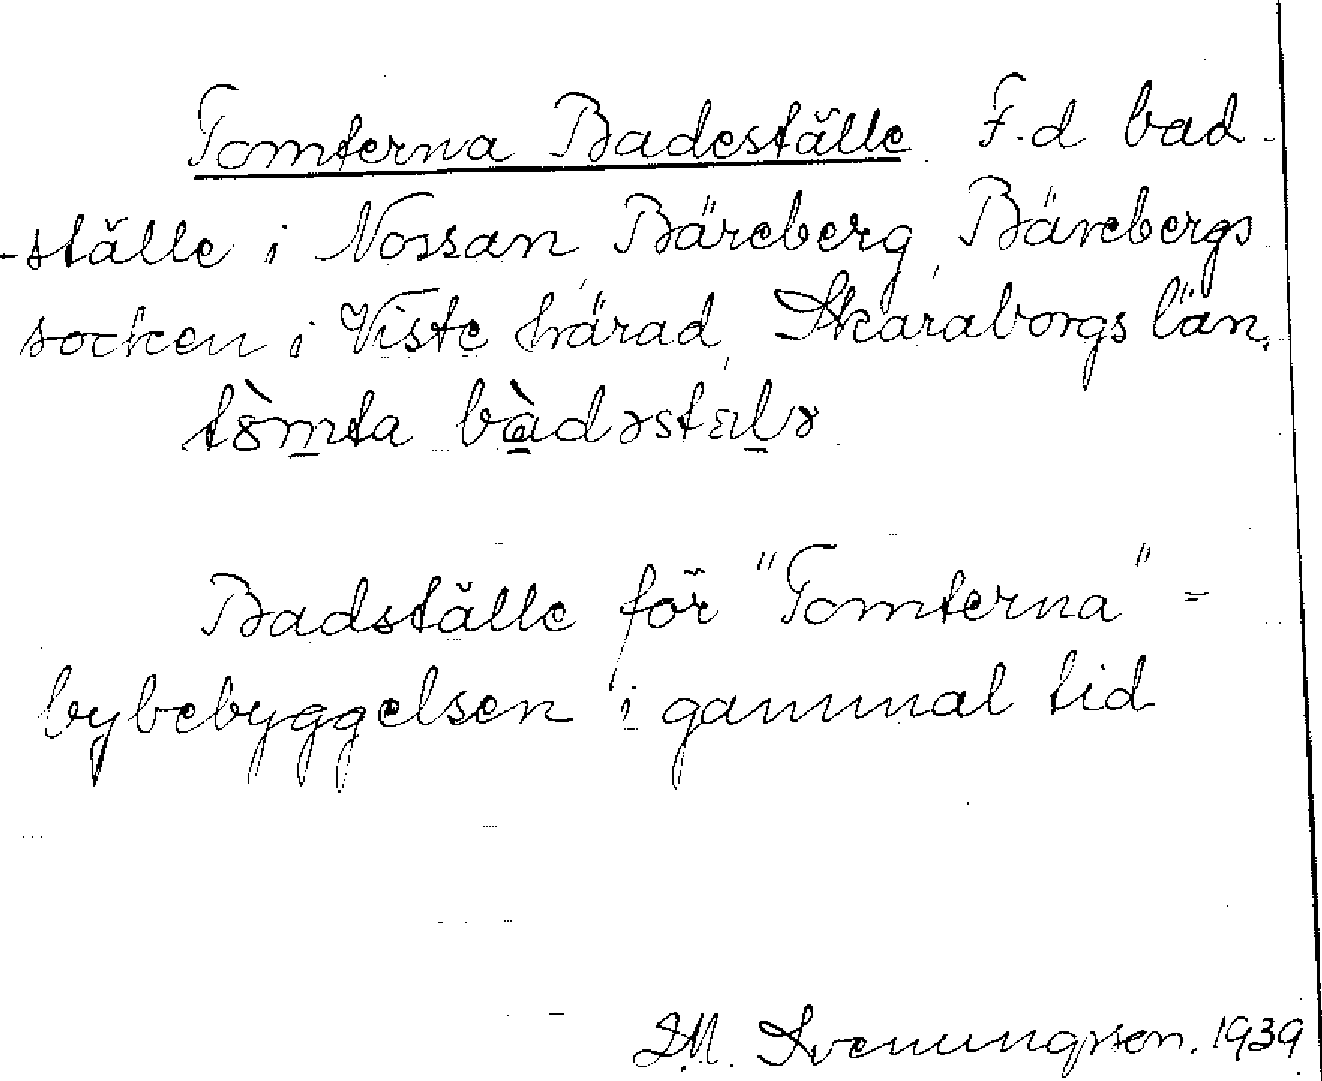 Tomterna Badeställe. F.d bad-
-ställe i Nossan, Bäreberg, Bärebergs
socken i Viste härad, Skaraborgs län.
tòmta bàdəstälə
Badställe för "Tomterna"=
bybebyggelsen i gammal tid
Svenungsson. 1939